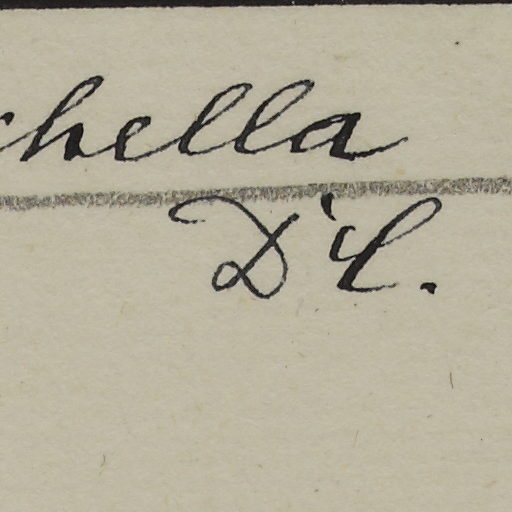 chella
D'C.